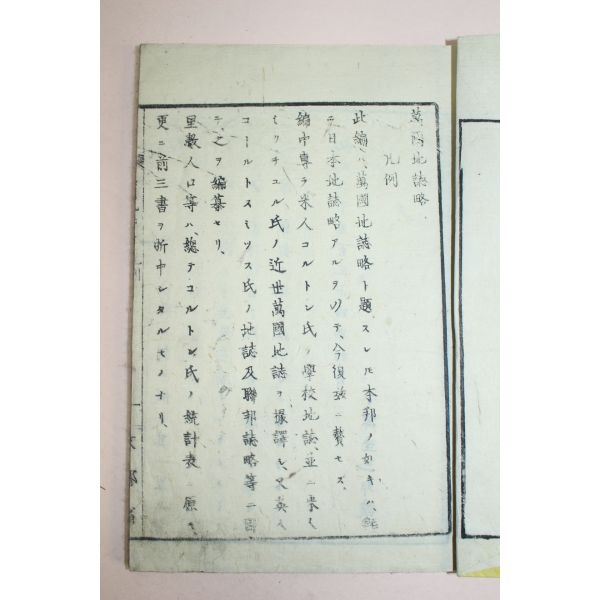 萬國地誌略
凡例
此編ハ、萬國地誌略ト題スレ𪜈本邦ノ如キハ、既
ニ日本地誌略アルヲ以テ、今復茲ニ贅セズ、
編中專ラ米人コルトン氏ノ學校地誌、並ニ米人
ミッチエル氏ノ近世萬國地誌ヲ據譯シ、又英人
ゴールトスミツス氏ノ地誌及聯邦誌略等ニ因
テ、之ヲ編纂セリ、
里數人口等ハ、總テコルトン氏ノ統計表ニ原キ、
更ニ前三書ヲ折中シタルモノナリ、
文部省